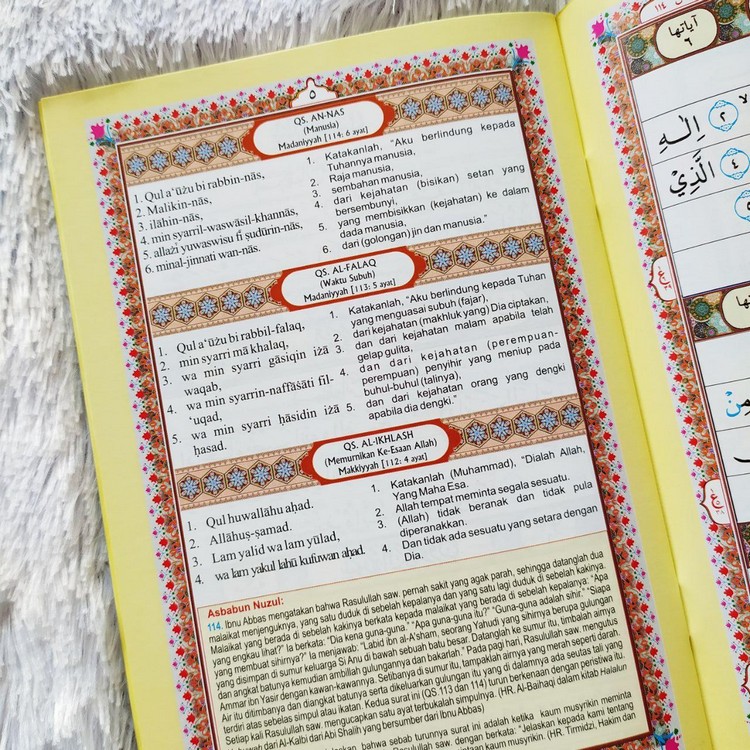 ٥
QS. AN-NAS
(Manusia)
Madaniyyah [114: 6 ayat]
1. Qul a‘ūżu bi rabbin-nās,
2. Malikin-nās,
3. ilāhin-nās,
4. min syarril-waswāsil-khannās,
5. allażī yuwaswisu fī ṣudūrin-nās,
6. minal-jinnati wan-nās.
1. Katakanlah, “Aku berlindung kepada
Tuhannya manusia,
2. Raja manusia,
3. sembahan manusia,
4. dari kejahatan (bisikan) setan yang
bersembunyi,
5. yang membisikkan (kejahatan) ke dalam
dada manusia,
6. dari (golongan) jin dan manusia.”
QS. AL-FALAQ
(Waktu Subuh)
Madaniyyah [113: 5 ayat]
1. Qul a‘ūżu bi rabbil-falaq,
2. min syarri mā khalaq,
3. wa min syarri gāsiqin iżā
waqab,
4. wa min syarrin-naffāṡāti fil-
‘uqad,
5. wa min syarri ḥāsidin iżā
ḥasad.
1. Katakanlah, “Aku berlindung kepada Tuhan
yang menguasai subuh (fajar),
2. dari kejahatan (makhluk yang) Dia ciptakan,
3. dan dari kejahatan malam apabila telah
gelap gulita,
4. dan dari kejahatan (perempuan-
perempuan) penyihir yang meniup pada
buhul-buhul (talinya),
5. dan dari kejahatan orang yang dengki
apabila dia dengki.”
QS. AL-IKHLASH
(Memurnikan Ke-Esaan Allah)
Makkiyyah [112: 4 ayat]
1. Qul huwallāhu aḥad.
2. Allāhuṣ-ṣamad.
3. Lam yalid wa lam yūlad,
4. wa lam yakul lahū kufuwan aḥad.
1. Katakanlah (Muhammad), “Dialah Allah,
Yang Maha Esa.
2. Allah tempat meminta segala sesuatu.
3. (Allah) tidak beranak dan tidak pula
diperanakkan.
4. Dan tidak ada sesuatu yang setara dengan
Dia.
Asbabun Nuzul:
114. Ibnu Abbas mengatakan bahwa Rasulullah saw. pernah sakit yang agak parah, sehingga datanglah dua
malaikat menjenguknya, yang satu duduk di sebelah kepalanya dan yang satu lagi duduk di sebelah kakinya.
Malaikat yang berada di sebelah kakinya berkata kepada malaikat yang berada di sebelah kepalanya: “Apa
yang engkau lihat?” Ia berkata: “Dia kena guna-guna.” “Apa guna-guna itu?” “Guna-guna adalah sihir.” “Siapa
yang membuat sihirnya?” Ia menjawab: “Labid Ibn al-A’sham, seorang Yahudi yang sihirnya berupa gulungan
yang disimpan di sumur keluarga Si Anu di bawah sebuah batu besar. Datanglah ke sumur itu, timbalah airnya
dan angkat batunya kemudian ambillah gulungannya dan bakarlah.” Pada pagi hari, Rasulullah saw. mengutus
Ammar ibn Yasir dengan kawan-kawannya. Setibanya di sumur itu, tampaklah airnya yang merah seperti darah.
Air itu ditimbanya dan diangkat batunya serta dikeluarkan gulungan itu yang di dalamnya ada seutas tali yang
terdiri atas sebelas simpul atau ikatan. Kedua surat ini (QS. 113 dan 114) turun berkenaan dengan peristiwa itu.
Setiap kali Rasulullah saw. mengucapkan satu ayat terbukalah simpulnya. (HR. Al-Baihaqi dalam kitab
dari Al-Kalbi dari Abi Shalih yang bersumber dari Ibnu Abbas)
bahwa sebab turunnya surat ini adalah ketika kaum musyrikin meminta
Rasulullah saw. dengan berkata: “Jelaskan kepada kami tentang
kaum musyrikin. (HR. Tirmidzi, Hakim dan
١١٤
آياتها
٦
٢ إِلٰهِ
٤ الَّذِيْ